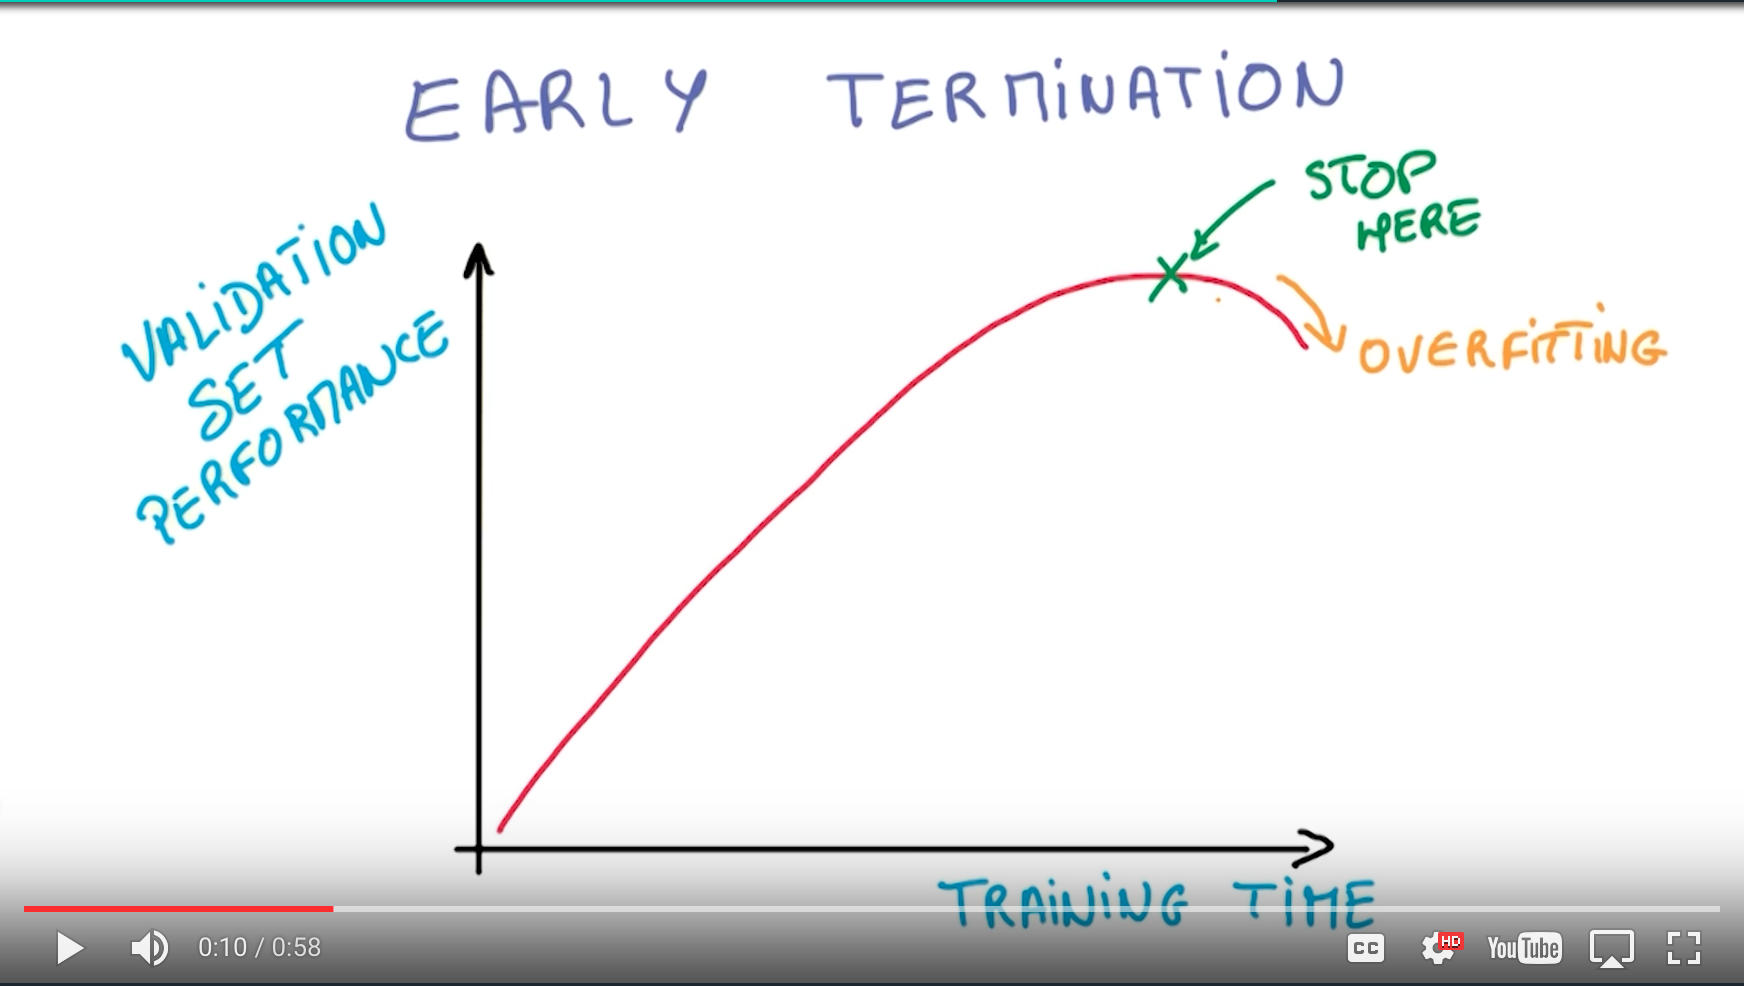 EARLY TERMINATION
STOP
HERE
VALIDATION
SET
PERFORMANCE
OVERFITTING
TRAINING TIME
0:10 / 0:58
CC
HD
YouTube